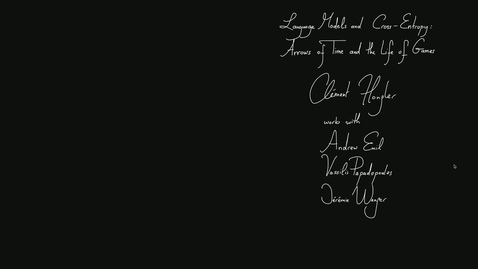 Language Models and Cross-Entropy:
Arrows of Time and the Life of Games
Clément Hongler
works with
Andrew Emil
Vassilis Papadopoulos
Jérémie Wenger